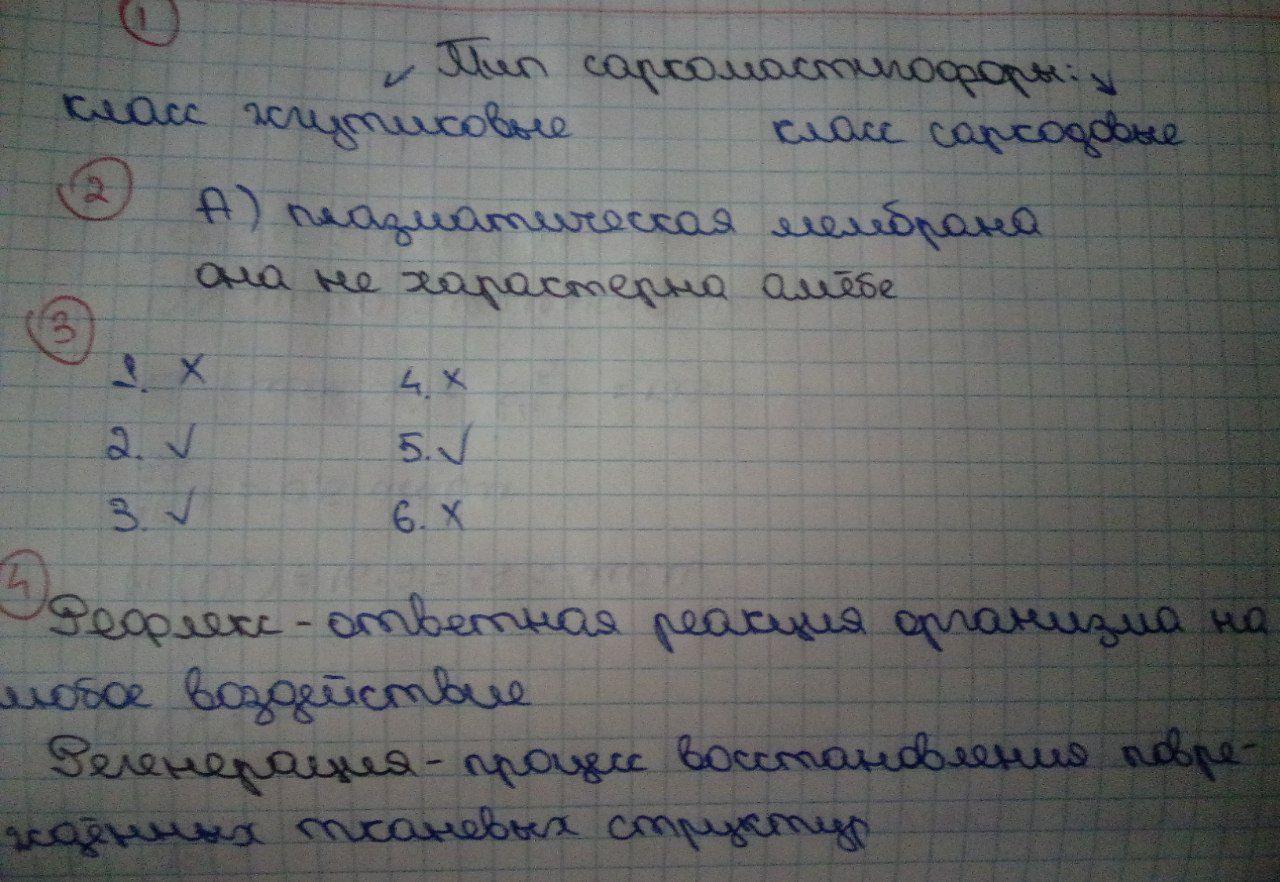 1
Тип саркомастигофоры:
класс жгутиковые класс саркодовые
2 А) плазматическая мембрана
она не характерна амёбе
3
1. x 4. x
2. ✓ 5. ✓
3. ✓ 6. x
4
Рефлекс - ответная реакция организма на
любое воздействие
Регенерация - процесс восстановления повре-
ждённых тканевых структур